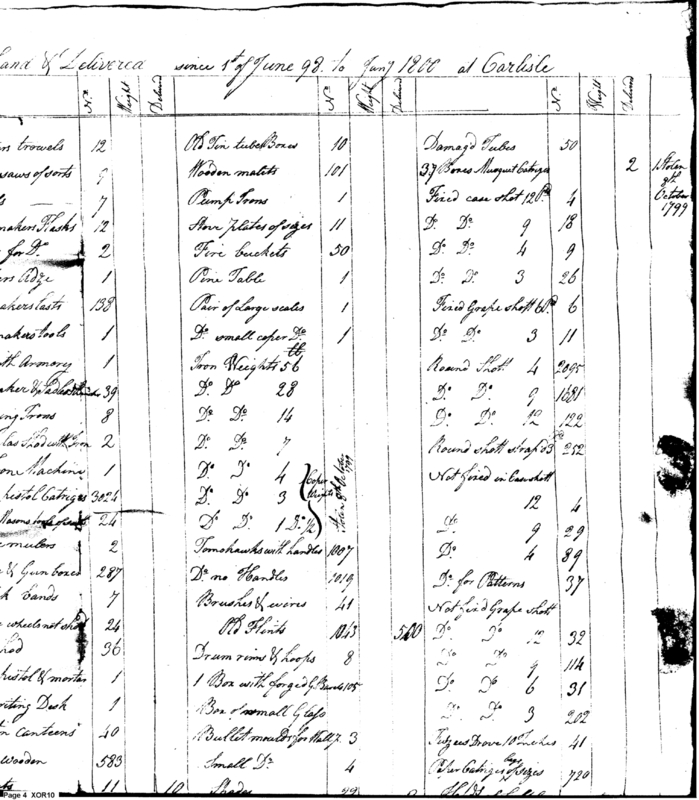 and & Delivered since 1st of June 98. to Jany 1800 at Carlisle
No Weight Delivd No Weight Delivd No Weight Delivd
trowels 12
saws of sorts 9
7
makers Flasks 12
for Do 2
Adze 1
makers lasts 138
makers tools 1
Armory 1
39
Irons 8
Shod with Iron 2
Machine 1
pistol Catriges 3024
24
2
& Gun boxes 287
bands 7
wheels not shod 24
shod 36
pistol & mortar 1
writing Desk 1
canteens 40
wooden 583
11 10
Old Tin tube Boxes 10
Wooden malits 101
Pump Irons 1
Stove plates of sizes 11
Fire buckets 50
Pine Table 1
Pair of Large scales 1
Do small coper Do 1
lb
Iron Weights 56
Do Do 28
Do Do 14
Do Do 7
Do Do 4
Do Do 3
Do Do 1 Do ½
Coper Weights
Stolen 9th October 1799
Tomohawks with handles 1007
Do no Handles 1019
Brushes & wires 41
Old Flints 1843 500
Drum rims & hoops 8
1 Box with forged G. 105
Box of small Glass
Bullet moulds for Wall P. 3
Small Do 4
Damagd Tubes 50
37 Boxes Musquet Catriges 2
Stolen 9th October 1799
Fixed case shot 12 Pd 4
Do Do 9 18
Do Do 4 9
Do Do 3 26
Fixed Grape shott 6 Pd 6
Do Do 3 11
Round Shott 4 2095
Do Do 9 1681
Do Do 12 122
Round shott strap'd 3 252
Not fixed in Case shott
12 4
Do 9 29
Do 4 89
Do for Patterns 37
Not fixd Grape shott
Do Do 12 32
Do Do 9 114
Do Do 6 31
Do Do 3 202
Fuzees Drove 10 Inches 41
Paper Catriges of sizes 720
Page 4 XOR10